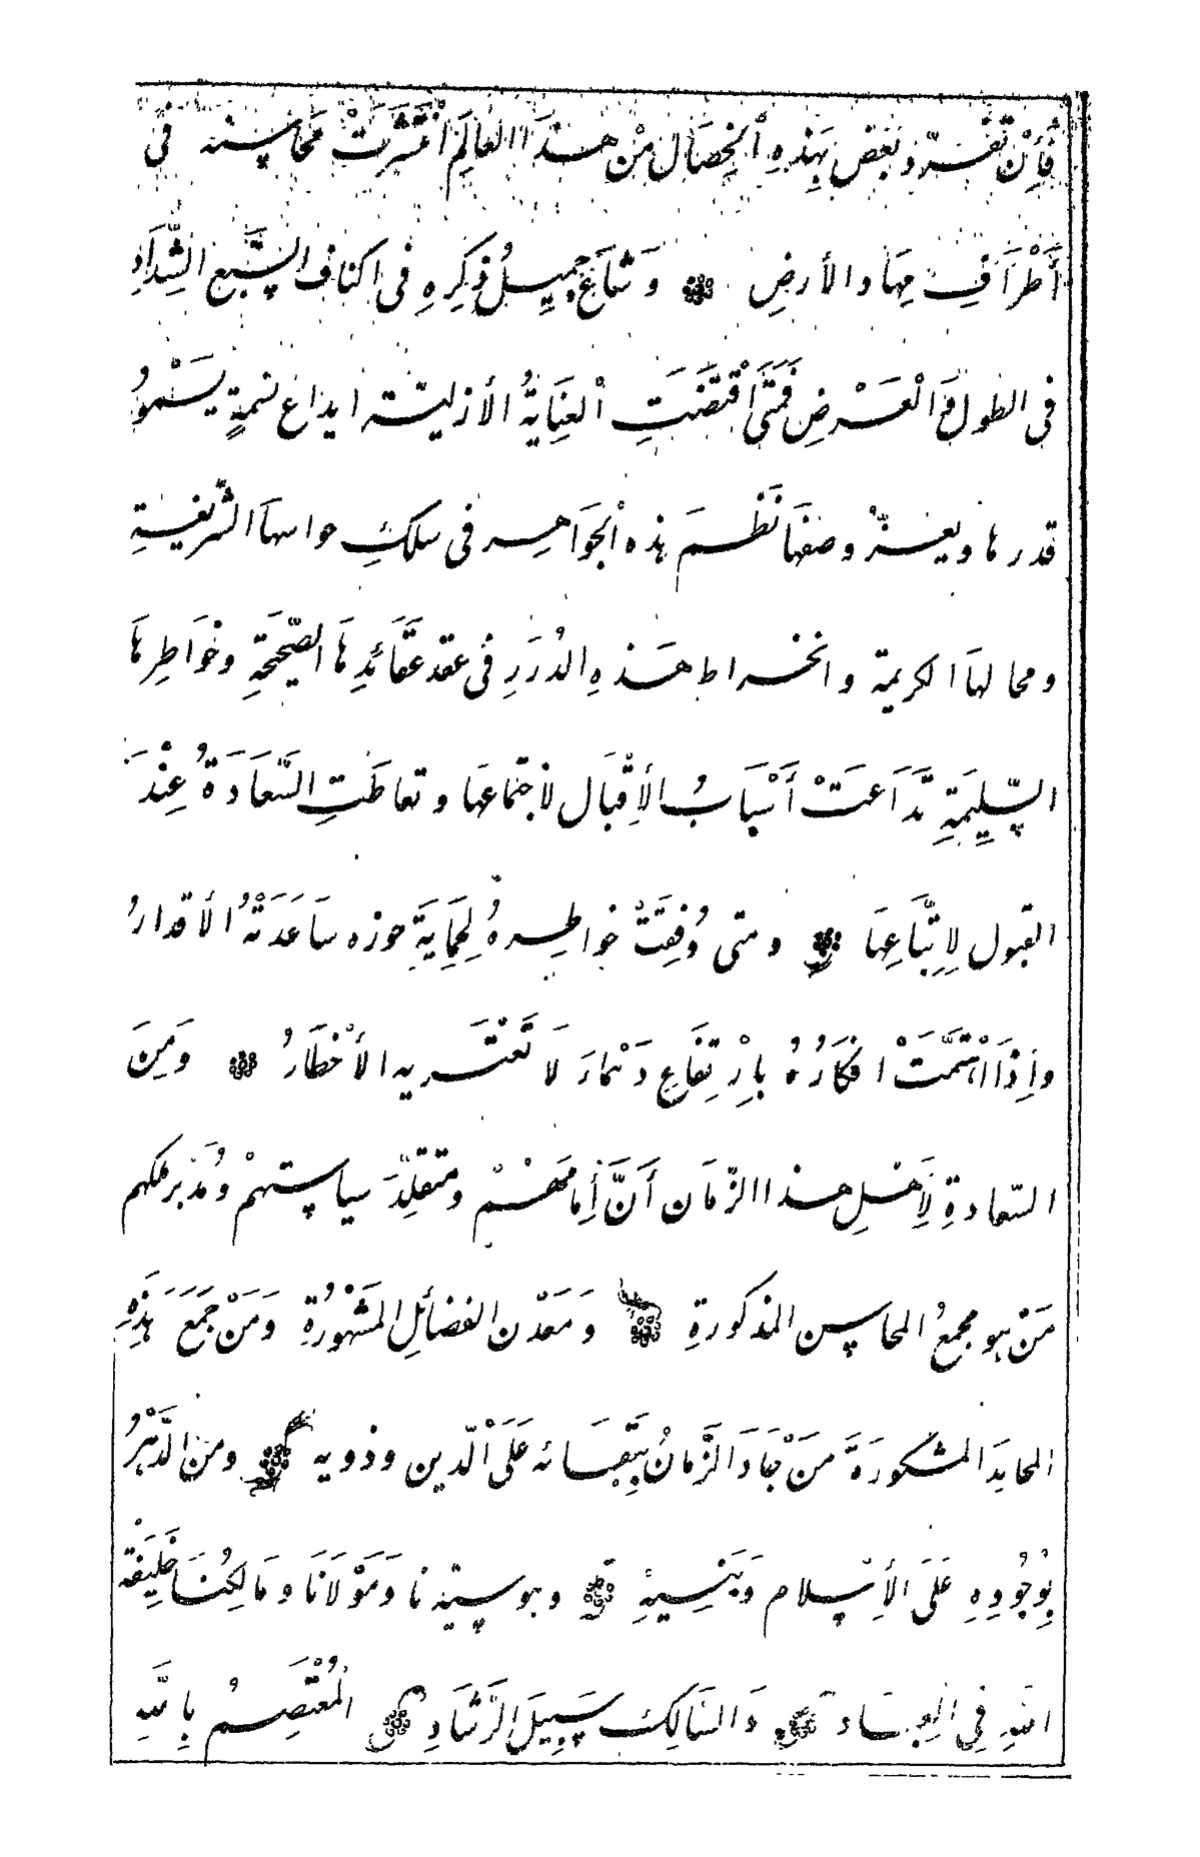 فَإِنْ تَفَرَّدَ بَعْضٌ بِهَذِهِ الْخِصَالِ مِنْ هَذَا الْعَالَمِ انْتَشَرَتْ مَحَاسِنُهُ فِي
أَطْرَافِهَا وَالأرضِ وَشَاعَ جَمِيلُ ذِكْرِهِ فى اكناف السَّبع الشِّدَادِ
فى الطول وَالْعَرْضِ فَمَتَى اقْتَضَتِ الْعِنَايَةُ الأزليّة ايداع نسمةٍ يَسْمُو
قدرها ويعزّ وصفها نَظْمَ هذه الْجَوَاهِر فى سلكِ حواسها الشّريفةِ
ومحالها الكريمة وانخراط هَذِهِ الدُرَرِ فى عقد عَقَائِدِهَا الصّحيحةِ وخَوَاطِرِهَا
السّلِيمَةِ تَدَاعَتْ أَسْبَابُ الأِقْبَال لاجتماعها وتعاطَتِ السَّعَادَةُ عِنْدَ
القبول لِاِتِّبَاعِهَا ومتى وُفِقَتْ خواطرهُ لِحِمَايَةِ حوزه سَاعَدَتْهُ الأقدارُ
واِذَا اهْتَمَّتْ افكَارُهُ بِاِرْتِفَاعِ دَمَارَ لَا تَعْتَريه الأَخْطَارُ وَمِنَ
السّعادةِ لِأَهْلِ هذا الزّمَان أَنَّ أِمامَهُمْ ومتقلِّدَ سياستهمْ ومُدَبّر ملكهم
مَنْ هو مجمعُ المحاسن المذكورةِ وَمَعْدَن الفضائلِ المَشْهُورَةِ وَمَنْ جَمَعَ هَذِهِ
المحامِدَ المشكورَةَ مَنْ جَادَ الزَّمَانُ بِبَقَائه عَلَى الّدين وذويه ومن الدَّهْرُ
بِوُجُودِهِ عَلَى الأِسْلام وَبَنِيهِ وهو سيّدنا وَمَوْلَانَا وَمَالِكُنَا خَلِيفَة
اللهِ فِى الْعِبَاد وَالسَّالِكُ سَبِيلَ الرَّشَادِ الْمُعْتَصِمُ بِاللهِ